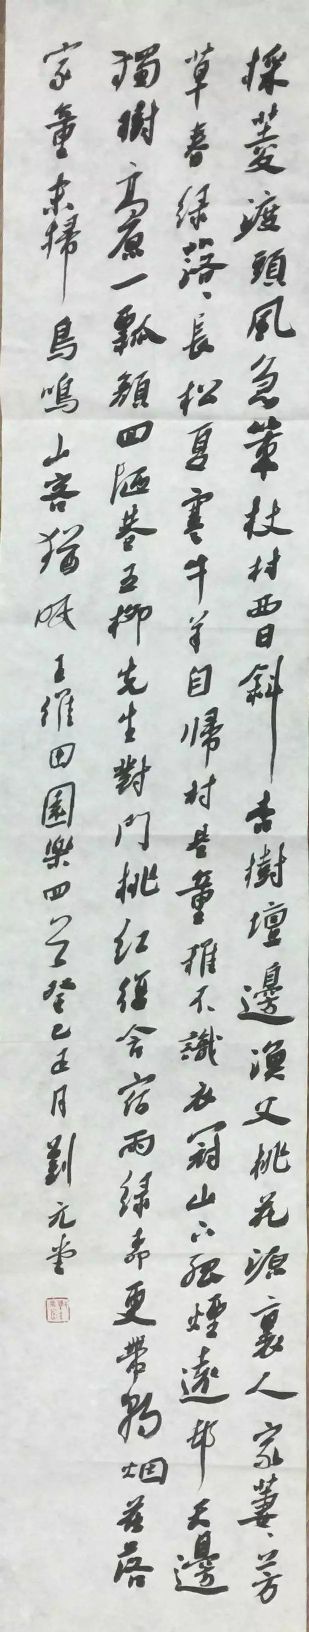 採菱渡頭風急策杖村西日斜杏樹壇邊漁父桃花源裏人家萋〻芳
草春緑落〻長松夏寒牛羊自歸村巷童稚不識衣冠山下孤煙遠邨天邊
獨樹高原一瓢顔回陋巷五柳先生對門桃紅復含宿雨緑柳更帶朝烟花落
家童未掃鳥鳴山客猶眠王維田園樂四首癸巳正月劉元堂